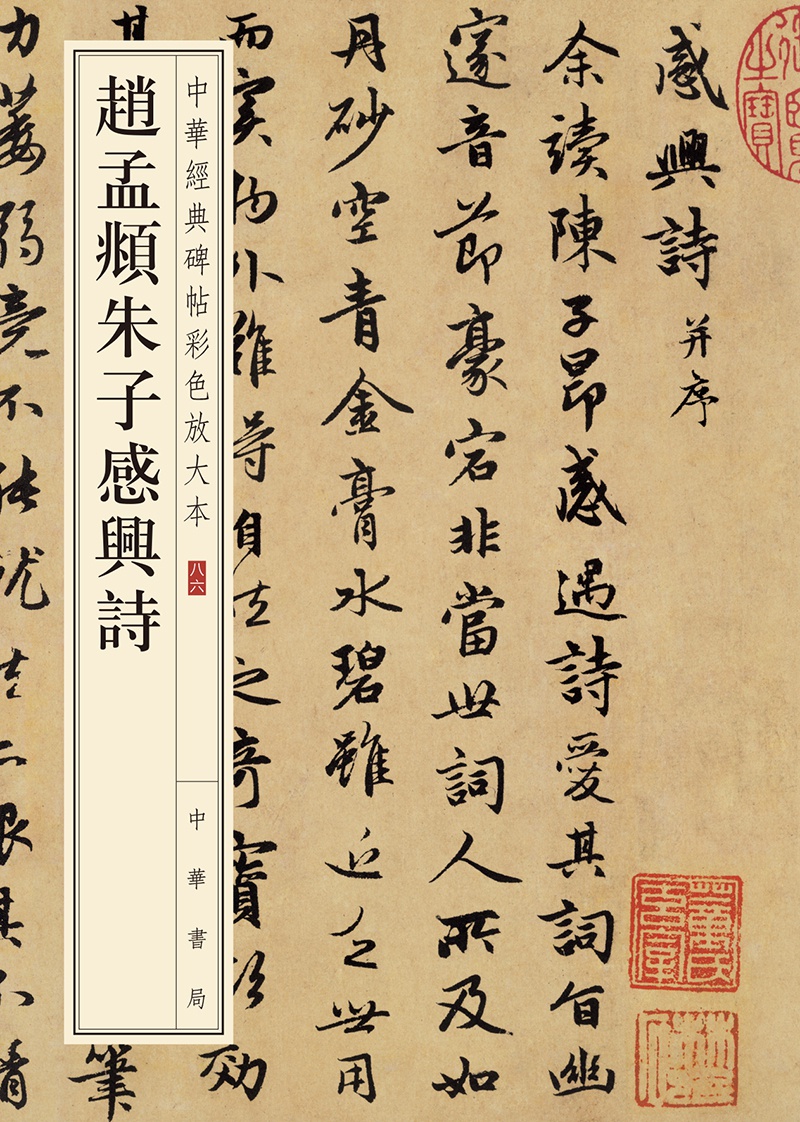 感興詩 并序
余讀陳子昂感遇詩愛其詞旨幽
邃音節豪宕非當世詞人所及如
丹砂空青金膏水碧雖近乏世用
而實物外難得自然之奇寶欲効
其
筆
力萎弱竟不能就然亦恨其不精
中華經典碑帖彩色放大本
八六
中華書局
趙孟頫朱子感興詩